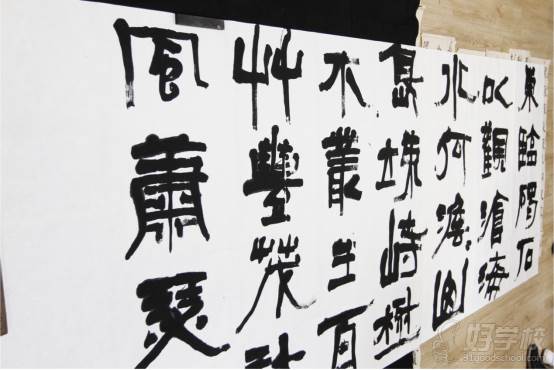 東臨碣石
以觀滄海
水何澹〻山
島竦峙樹
木叢生百
艸豐茂秋
風蕭瑟
好学校
91goodschool.com